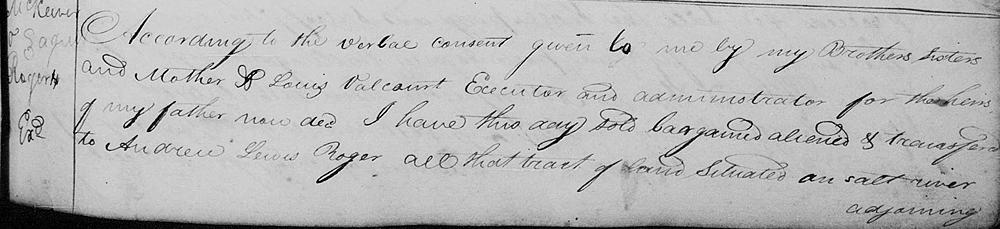 McKeever
&
Rogers
Exd
According to the verbal consent given to me by my Brothers, sisters
and Mother & Louis Valcourt Executor and administrator for the heirs
of my father now decd I have this day sold bargained aliened & transferd
to Andrew Lewis Roger all that tract of land situated on salt river
adjoining